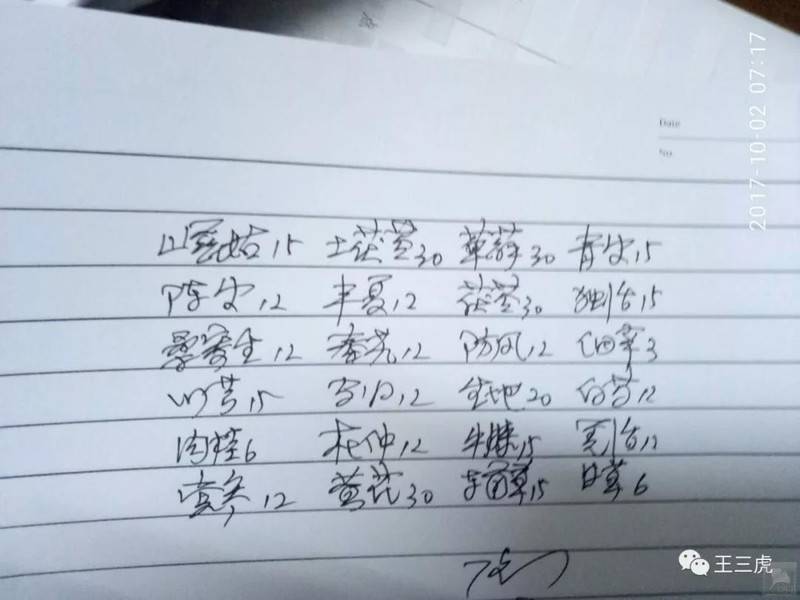 Date
No.
2017-10-02 07:17
山慈姑15 土茯苓30 萆薢30 青皮15
陈皮12 半夏12 茯苓30 独活15
桑寄生12 秦艽12 防风12 细辛3
川芎15 当归12 生地20 白芍12
肉桂6 杜仲12 牛膝15 羌活12
党参12 黄芪30 15 甘草6
王三虎